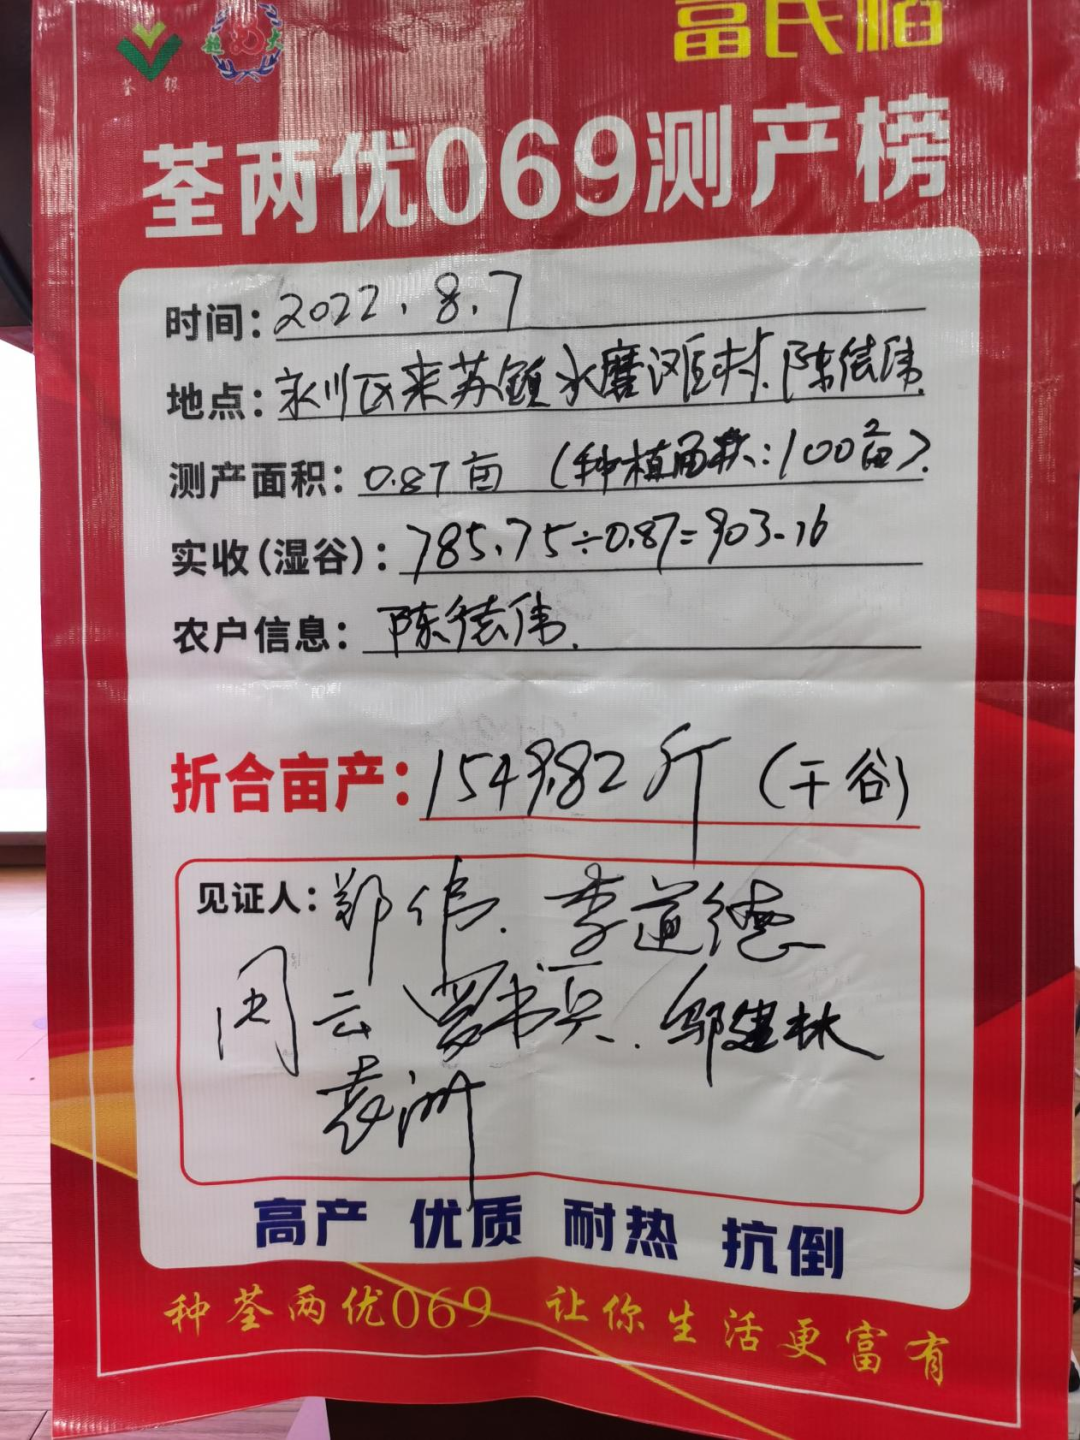 荃银
超大
富民稻
荃两优069测产榜
时间：2022.8.7
地点：永川区来苏镇水磨滩村.陈德伟.
测产面积：0.87亩（种植面积：100亩）.
实收(湿谷)：785.75÷0.87=903.16
农户信息：陈德伟.
折合亩产：1549.82斤（干谷）
见证人：郑伟.李道德
周云 罗书兵.邹建林
袁洲
高产 优质 耐热 抗倒
种荃两优069 让你生活更富有